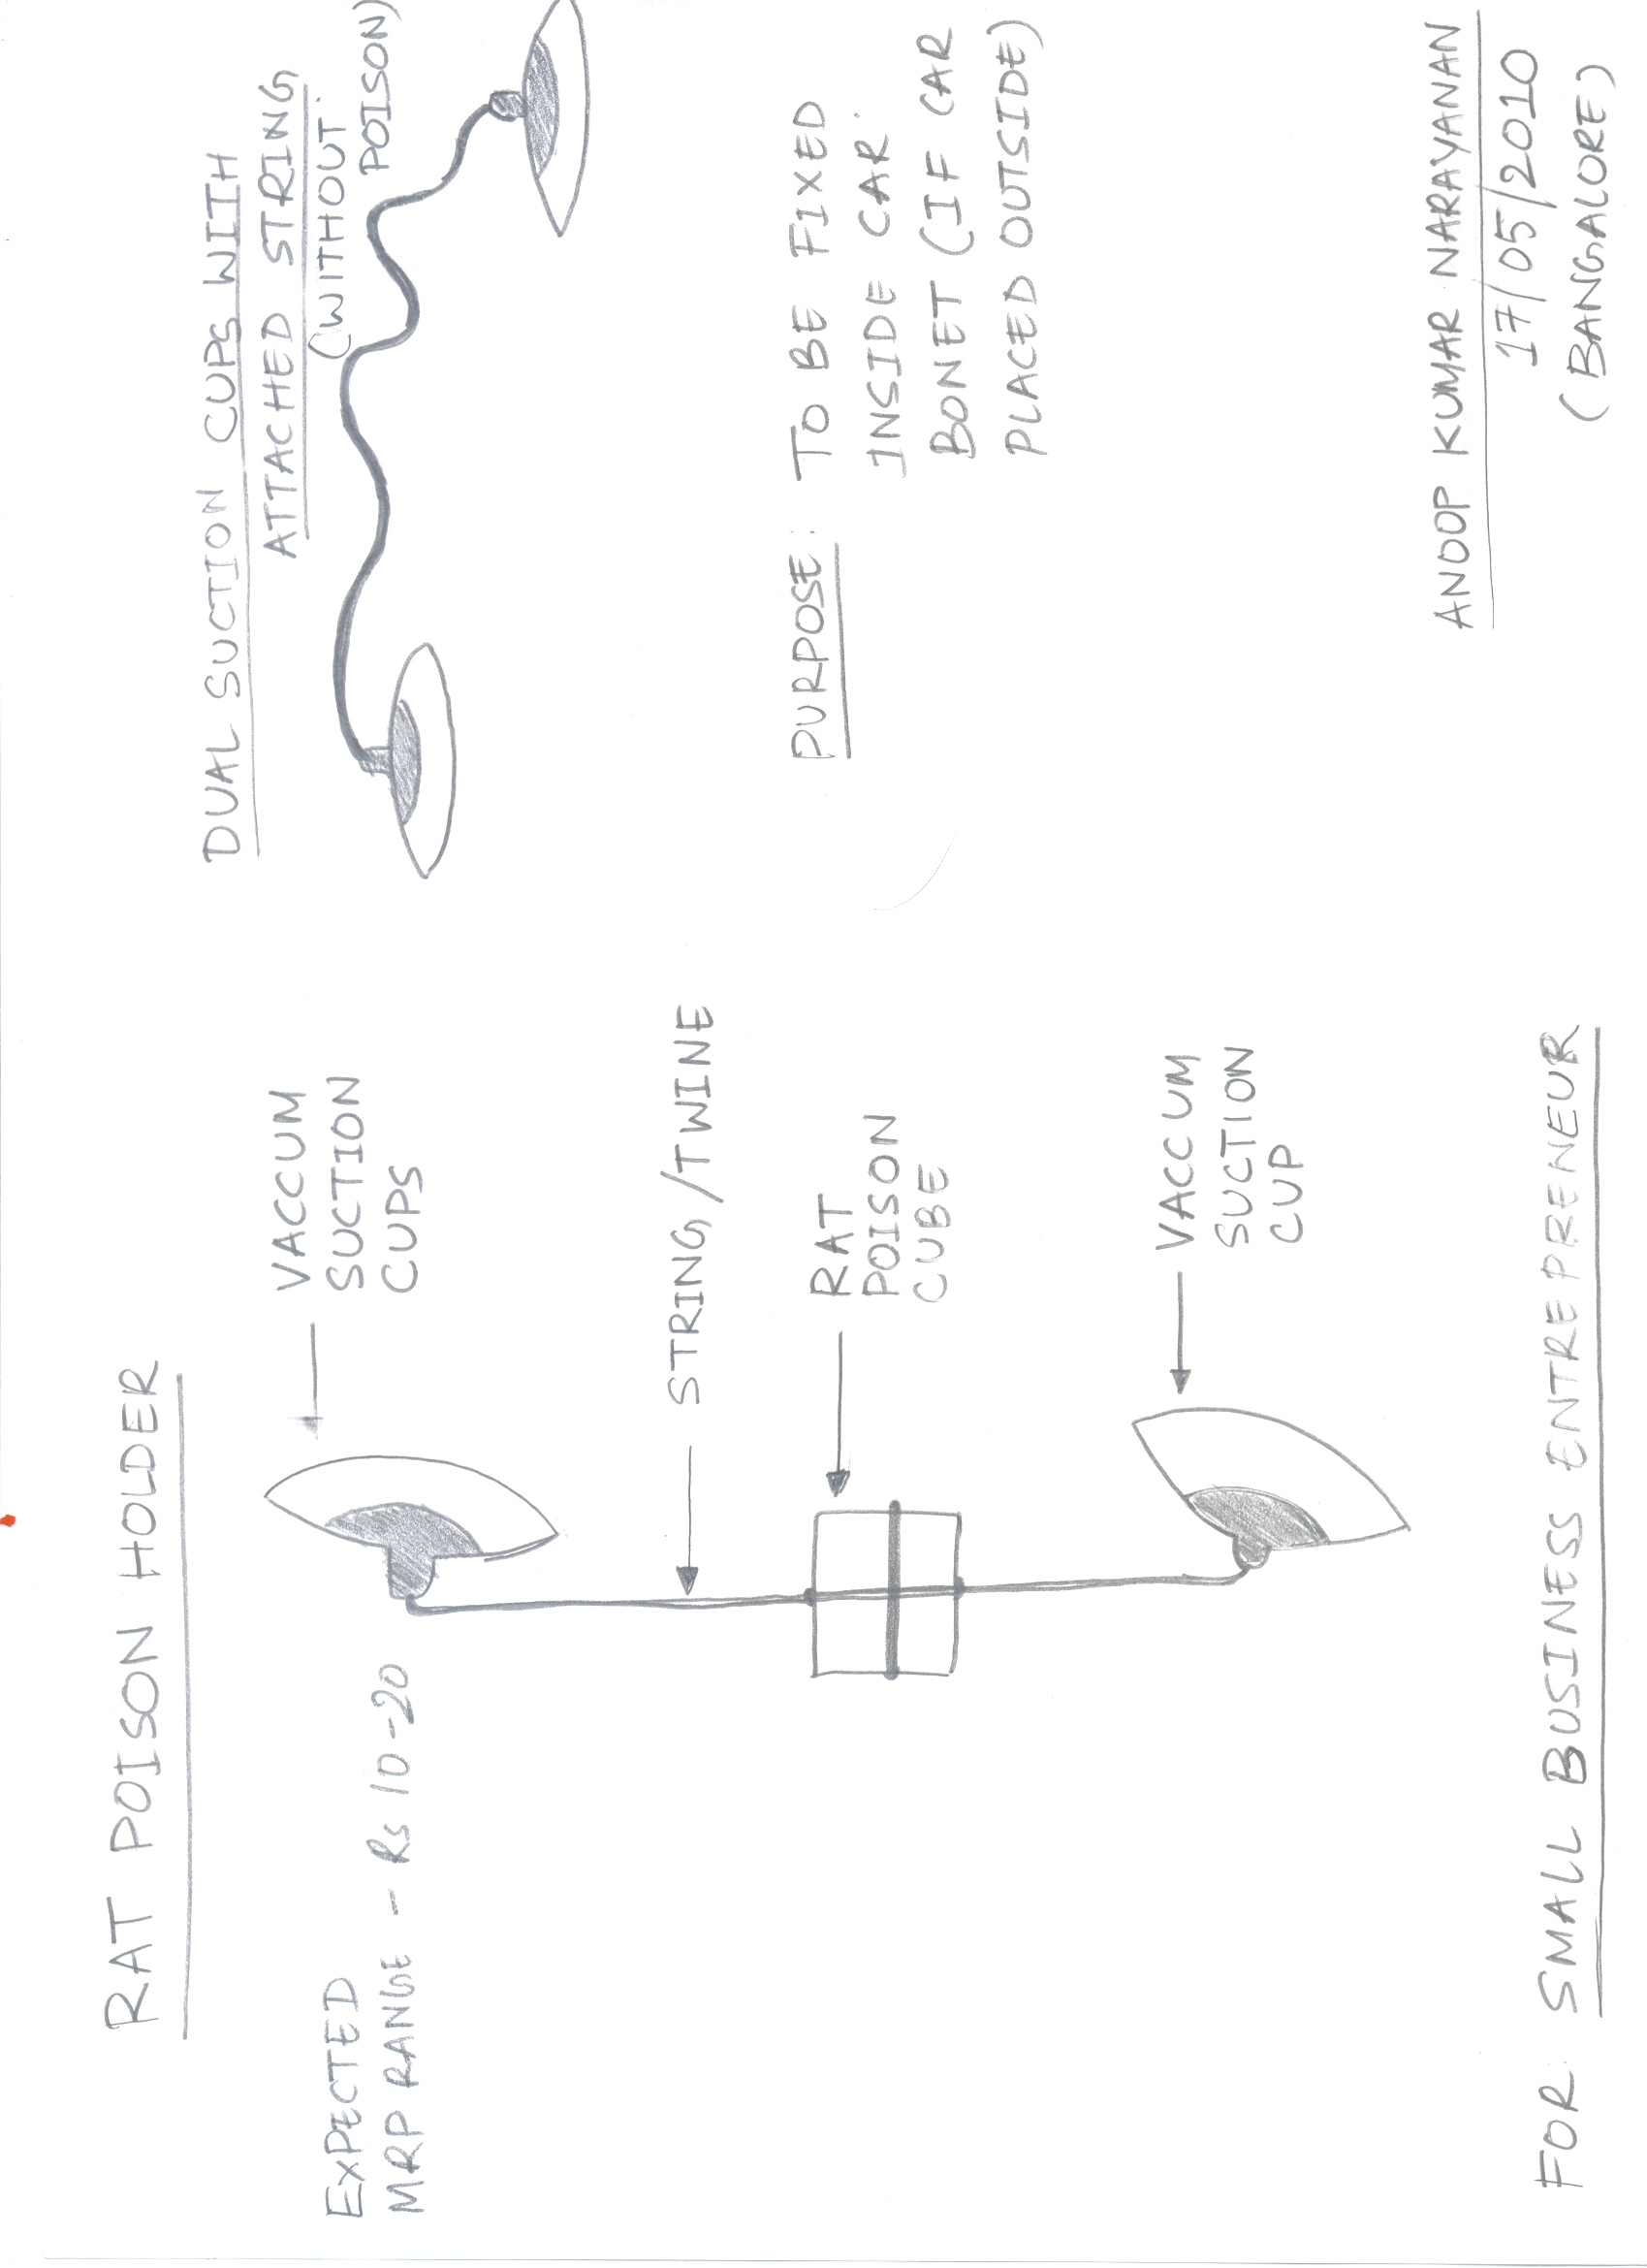 RAT POISON HOLDER
EXPECTED
MRP RANGE - Rs 10-20
VACCUM
SUCTION
CUPS
STRING/TWINE
RAT
POISON
CUBE
VACCUM
SUCTION
CUP
FOR: SMALL BUSINESS ENTREPRENEUR
DUAL SUCTION CUPS WITH
ATTACHED STRING
(WITHOUT
POISON)
PURPOSE: TO BE FIXED
INSIDE CAR
BONET (IF CAR
PLACED OUTSIDE)
ANOOP KUMAR NARAYANAN
17/05/2010
(BANGALORE)